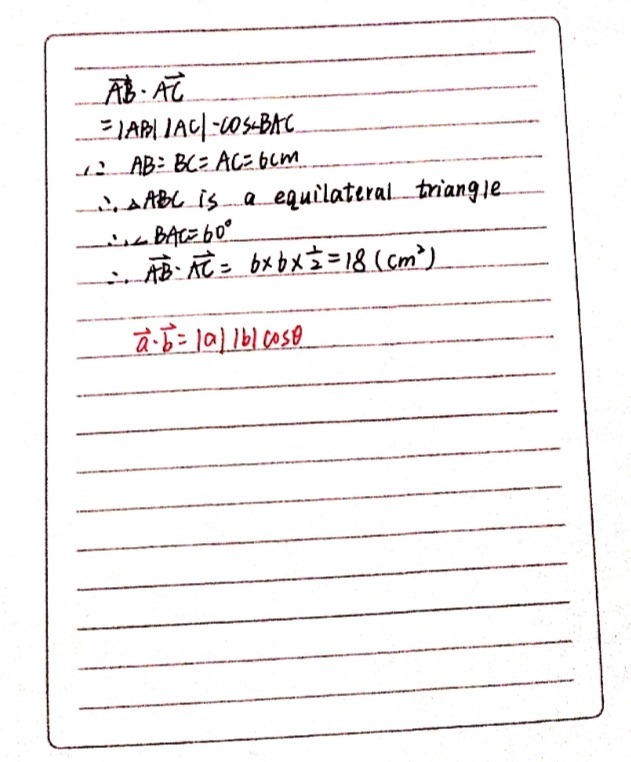 AB⃗·AC⃗
=|AB||AC|·cos∠BAC
∵ AB=BC=AC=6cm
∴ △ABC is a equilateral triangle
∴∠BAC=60°
∴ AB⃗·AC⃗= 6×6×½=18(cm²)
a⃗·b⃗=|a||b|cosθ